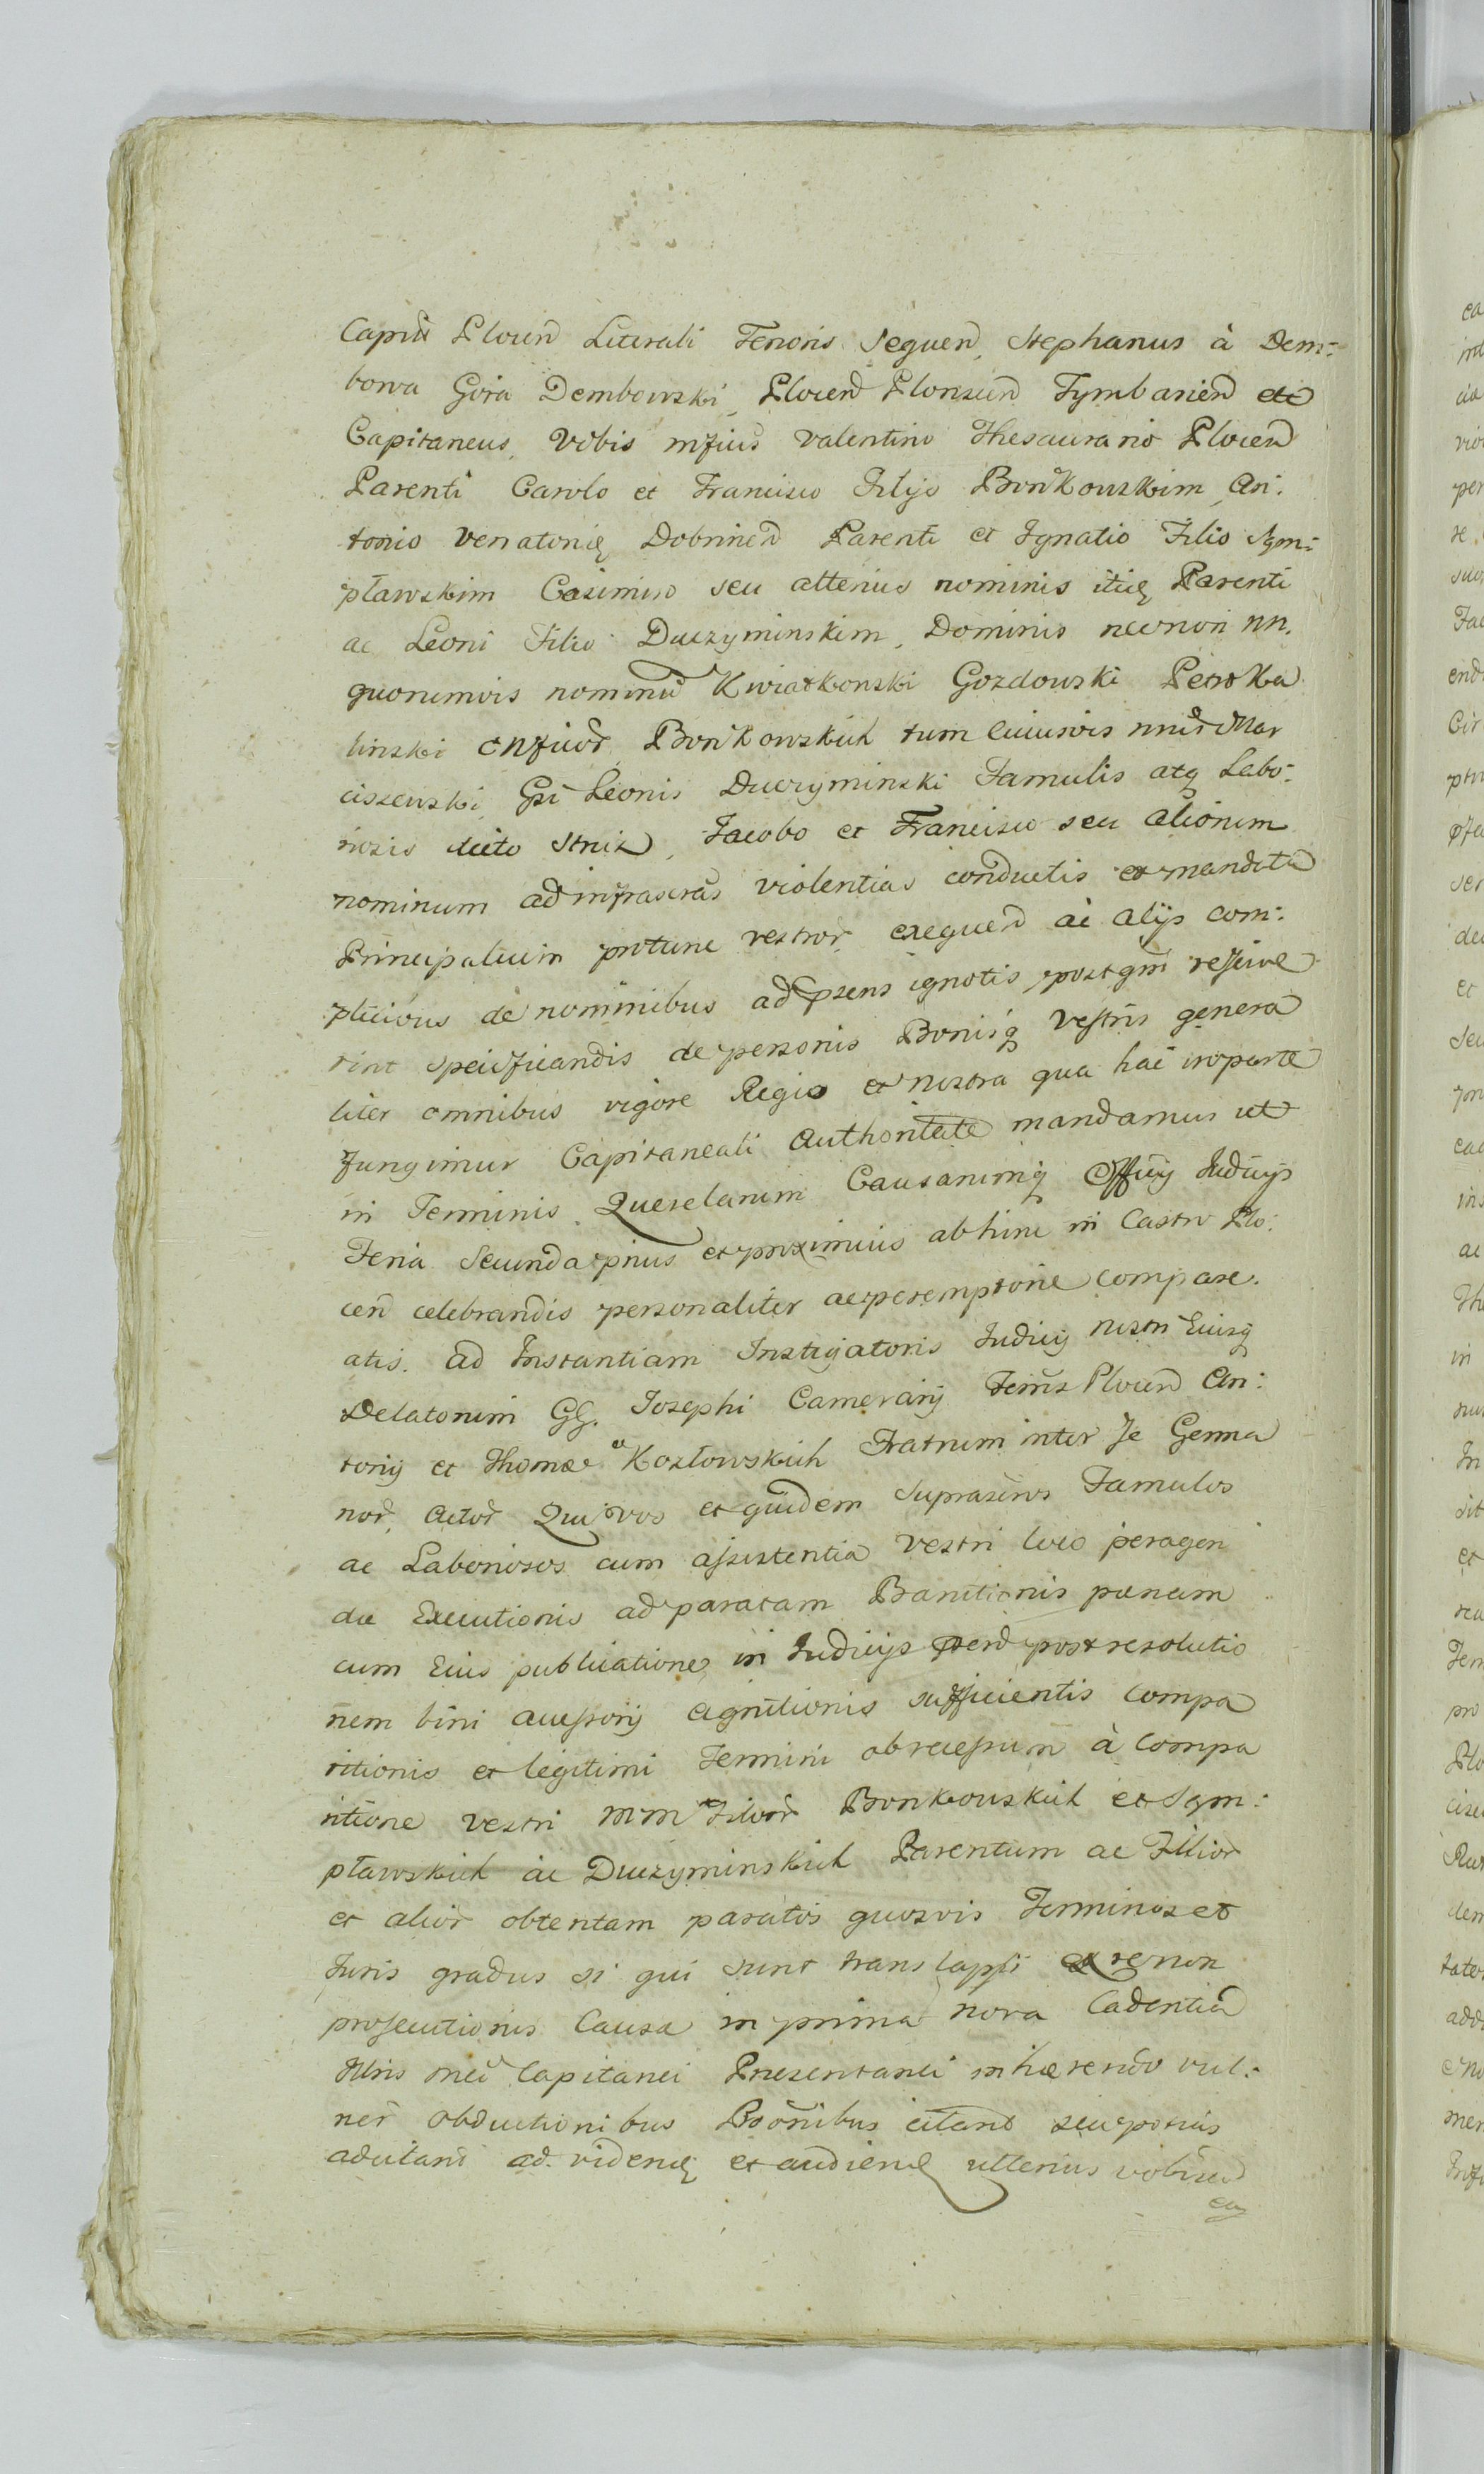 Capitū Plocen̄ Literali Tenoris Sequen̄, Stephanus à Dem:
bowa Góra Dembowski, Plocen̄ Plonscen̄ Tymbarien̄ etc
Capitaneus, Vobis mfcis Valentino Thesaurario Plocen̄
Parenti Carolo et Francisco Filijs Bonkowskim, An:
tonio Venatoriq Dobrinen̄ Parenti et Ignatio Filio Sym:
pławskim Casimiro seu alterius nominis itiq Parenti
ac Leoni Filio Duczyminskim, Dominis necnon nn.
quorumvis nominū Kwiatkowski Gozdowski Petro Ka
linski mfcor̄ Bonkowskich tum cuiusvis nnis Mar
ciszewski Gsi Leonis Duczyminski Famulis atq Labo:
riosis dicto Struz, Jacobo et Francisco seu aliorum
nominum ad infrascrās violentias conductis et mandata
Principalium protunc vestror̄ exequen̄ ac alijs com:
plicibus de nominibus ad psens ignotis postqm rescive
rint specificandis de personis Bonisq Vestris genera
liter omnibus vigore Regia et nostra qua hac in parte
fungimur Capitaneali Authoritate mandamus ut
in Terminis Querelarum Causarumq Officij Judicijs
Feria Secunda prius et proximius abhinc in Castro Plo:
cen̄ celebrandis personaliter ac peremptorie compare.
atis. ad Instantiam Instigatoris Judicij nostri Eiusq
Delatorum GG. Josephi Camerarij Terrīs Plocen̄ An:
tonij et Thomæ Kozłowskich Fratrum inter se Germa
nor̄, Actor̄ Qui vos et quidem Suprascrōs Famulos
ac Laboriosos cum assistentia vestri loco peragen
dæ Executionis ad paratam Bannitionis pœnam
cum Eius publicatione, in Judicijs post resolutio
nem bini accessorij agnitionis sufficientis compa
ritionis et legitimi Termini ob recessum à compa
ritione vestri mm Filior̄ Bonkowskich et Sym:
pławskich ac Duczyminskich Parentum ac Filior̄
et alior̄ obtentam paratos quosvis Terminos et
Juris gradus si qui sunt translapsi ex re non
prosecutionis Causæ in prima nova Cadentia
Mfcis mei Capitanei Præsentanei inhærendo vul:
ner̄ obductionibus Bōonibus citant seu potius
adcitant ad videnq et audienq ulterius vobiscū
ea